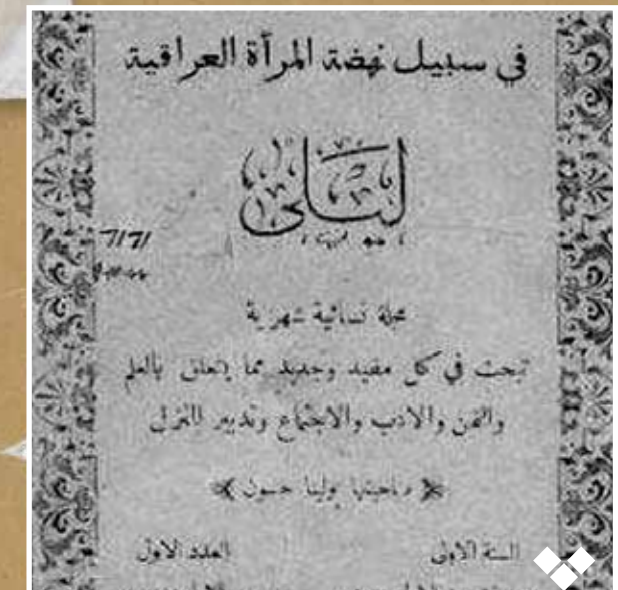 في سبيل نهضة المرأة العراقية
ليلى
7171
مجلة نسائية شهرية
تبحث في كل مفيد وجديد مما يتعلق بالعلم
والفن والادب والاجتماع وتدبير المنزل
صاحبتها بولينا حسون
السنة الاولى
العدد الاول